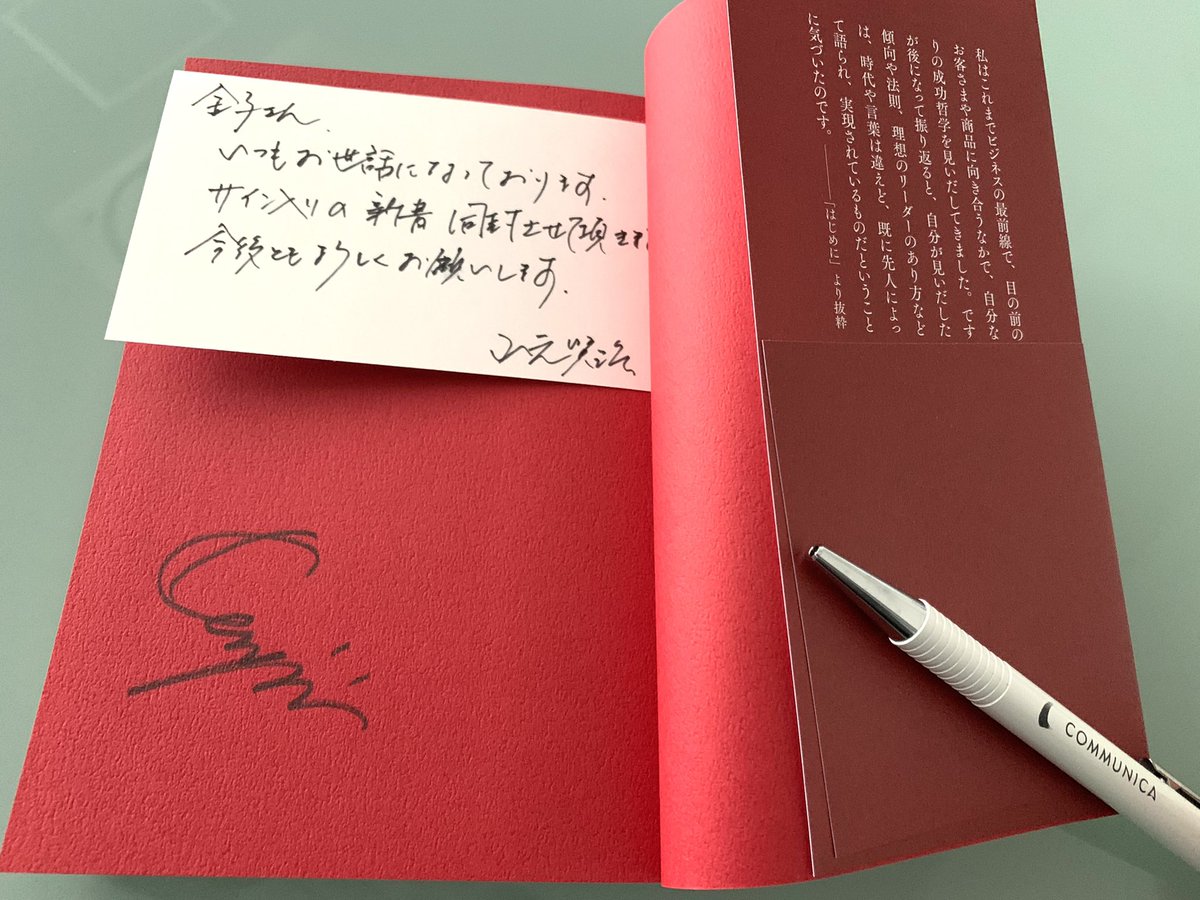 金子さん、
いつもお世話になっております。
サイン入りの新書同封させて頂きます
今後とも宜しくお願いします。
私はこれまでビジネスの最前線で、目の前の
お客さまや商品に向き合うなかで、自分な
りの成功哲学を見いだしてきました。です
が後になって振り返ると、自分が見いだした
傾向や法則、理想のリーダーのあり方など
は、時代や言葉は違えど、既に先人によっ
て語られ、実現されているものだということ
に気づいたのです。
――「はじめに」より抜粋
COMMUNICA